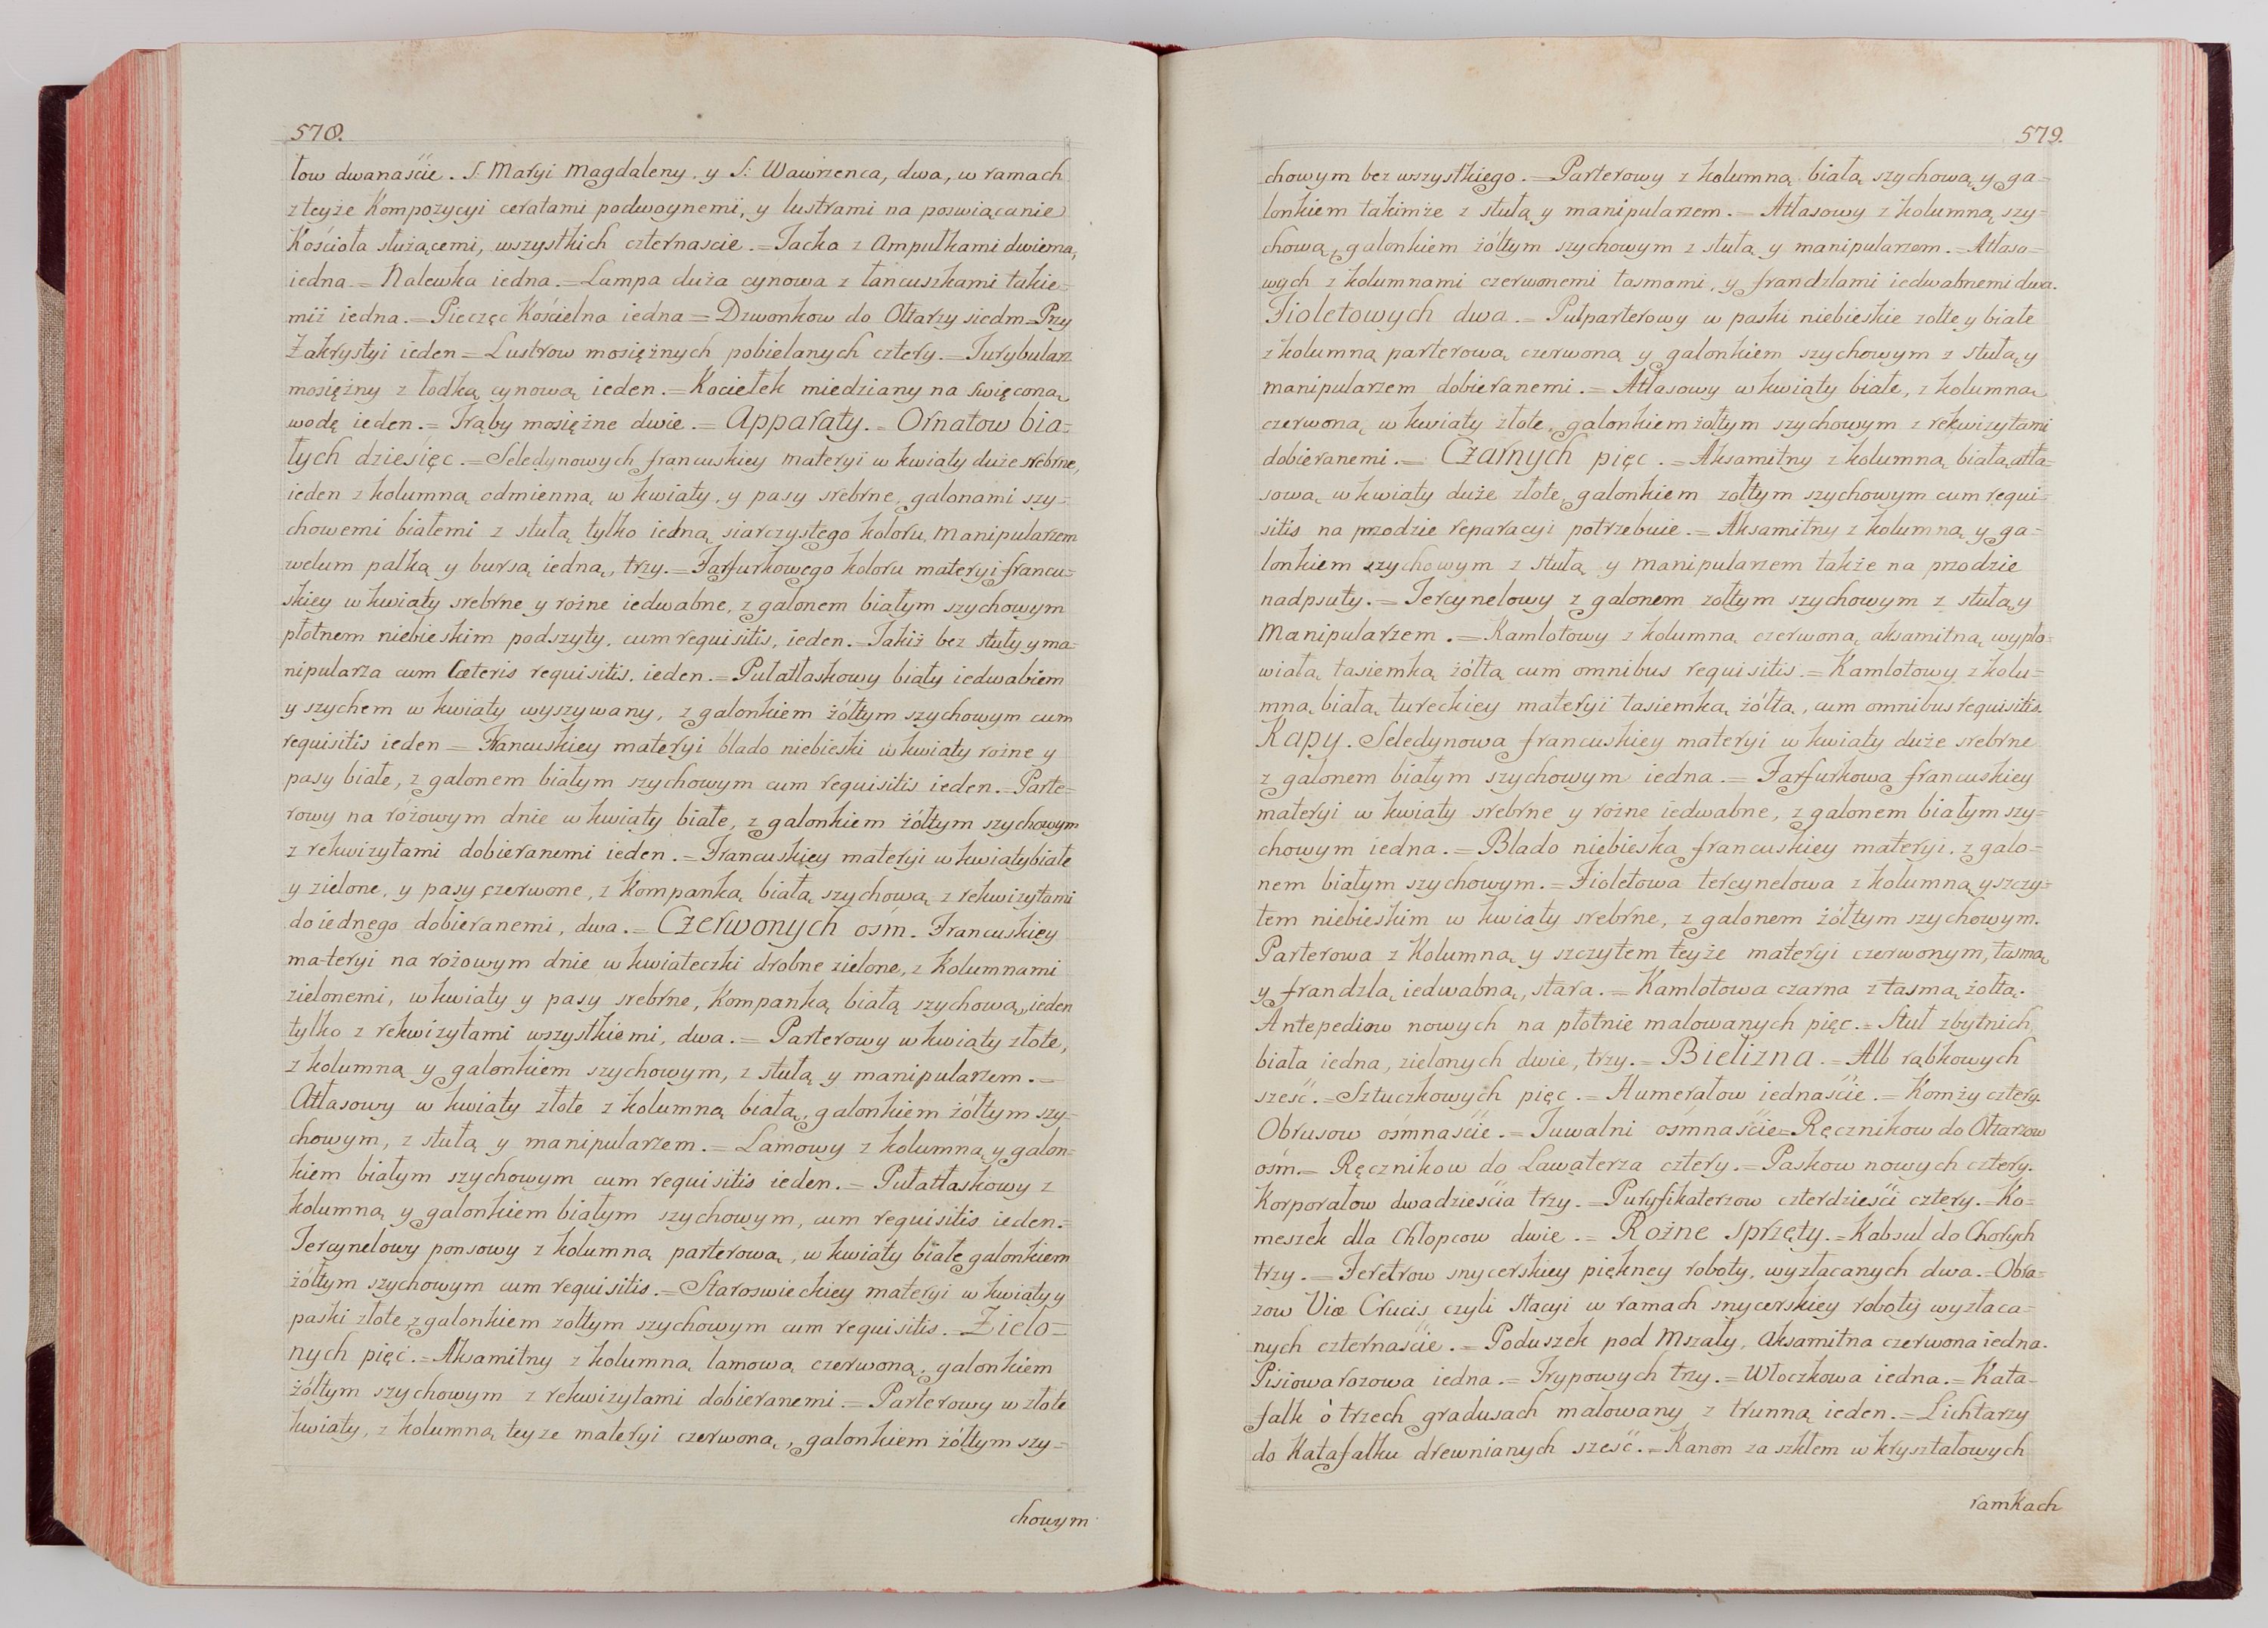 578.
łow dwanaście. S: Maryi Magdaleny. y S: Wawrzenca, dwa, w ramach
z teyże Kompozycyi ceratami podwoynemi, y lustrami na poswiącanie
Kościoła służącemi, wszystkich czternascie. = Tacka z Ampułkami dwiema,
iedna = Nalewka iedna. = Lampa duża cynowa z łancuszkami takie=
miż iedna. = Pieczęc Kościelna iedna = Dzwonkow do Ołtarzy siedm = Przy
Zakrystyi ieden = Lustrow mosiężnych pobielanych cztery. = Turybularz
mosiężny z łodką cynową ieden. = Kociełek miedziany na święconą
wodę ieden. = Trąby mosiężne dwie. = Apparaty. = Ornatow bia=
łych dziesięc. = Seledynowych francuskiey materyi w kwiaty duże srebrne,
ieden z kolumną odmienną w kwiaty, y pasy srebrne, galonami szy=
chowemi białemi z stułą tylko iedną siarczystego koloru, Manipularzem
welum palką y bursą iedną, trzy. = Farfurkowego koloru materyi francu=
skiey w kwiaty srebrne y rożne iedwabne, z galonem białym szychowym
płotnem niebieskim podszyty, cum requisitis, ieden. = Takiż bez stuły y ma=
nipularza cum Cœteris requisitis. ieden. = Pułatłaskowy biały iedwabiem
y szychem w kwiaty wyszywany, z galonkiem żółtym szychowym cum
requisitis ieden = Francuskiey materyi blado niebieski w kwiaty rożne y
pasy białe, z galonem białym szychowym cum requisitis ieden. = Parte=
rowy na różowym dnie w kwiaty białe, z galonkiem żółtym szychowym
z rekwizytami dobieranemi ieden. = Francuskiey materyi w kwiaty białe
y zielone, y pasy czerwone, z Kompanką białą szychową z rekwizytami
do iednego dobieranemi, dwa. = Czerwonych osm. Francuskiey
materyi na rożowym dnie w kwiateczki drobne zielone, z Kolumnami
zielonemi, w kwiaty y pasy srebrne, Kompanką białą szychową, ieden
tylko z rekwizytami wszystkiemi, dwa. = Parterowy w kwiaty złote,
z kolumną y galonkiem szychowym, z stułą y manipularzem. =
Atłasowy w kwiaty złote z kolumną białą, galonkiem żółtym szy=
chowym, z stułą y manipularzem. = Lamowy z kolumną y galon=
kiem białym szychowym cum requisitis ieden. = Pułatłaskowy z
kolumną y galonkiem białym szychowym, cum requisitis ieden. =
Tercynelowy ponsowy z kolumną parterową, w kwiaty białe galonkiem
żółtym szychowym cum requisitis. = Staroswieckiey materyi w kwiaty y
paski złote, z galonkiem zołtym szychowym cum requisitis. = Zielo=
nych pięć. = Aksamitny z kolumną lamową czerwoną, galonkiem
żółtym szychowym z rekwizytami dobieranemi. = Parterowy w złote
kwiaty, z kolumną teyze materyi czerwoną, galonkiem żółtym szy=
chowym
579.
chowym bez wszystkiego. = Parterowy z kolumną białą szychową y ga=
lonkiem takimże z stułą y manipularzem. = Atłasowy z kolumną szy=
chową, galonkiem żółtym szychowym z stułą y manipularzem. = Atłaso=
wych z kolumnami czerwonemi tasmami, y frandzlami iedwabnemi dwa.
Fioletowych dwa. = Pułparterowy w paski niebieskie zołte y białe
z kolumną parterową czerwoną y galonkiem szychowym z stułą y
manipularzem dobieranemi. = Atłasowy w kwiaty białe, z kolumną
czerwoną w kwiaty złote, galonkiem żołtym szychowym z rekwizytami
dobieranemi. = Czarnych pięc. = Aksamitny z kolumną białą atła=
sową w kwiaty duże złote, galonkiem zołtym szychowym cum requi=
sitis na przodzie reparacyi potrzebuie. = Aksamitny z kolumną y ga=
lonkiem szychowym z stułą y manipularzem także na przodzie
nadpsuty. = Tercynelowy z galonem zołtym szychowym z stułą y
Manipularzem. = Kamlotowy z kolumną czerwoną aksamitną wypło=
wiałą tasiemką żółtą cum omnibus requisitis. = Kamlotowy z kolu=
mną białą tureckiey materyi tasiemką żółtą, cum omnibus requisitis.
Kapy. Seledynowa francuskiey materyi w kwiaty duże srebrne
z galonem białym szychowym iedna. = Farfurkowa francuskiey
materyi w kwiaty srebrne y rożne iedwabne, z galonem białym szy=
chowym iedna. = Blado niebieska francuskiey materyi, z galo=
nem białym szychowym. = Fioletowa tercynelowa z kolumną y szczy=
tem niebieskim w kwiaty srebrne, z galonem żółtym szychowym.
Parterowa z Kolumną y szczytem teyże materyi czerwonym, tasmą
y frandzlą iedwabną, stara. = Kamlotowa czarna z tasmą żołtą.
Antepediow nowych na płotnie malowanych pięc. = Stuł zbytnich
biała iedna, zielonych dwie, trzy. = Bielizna. = Alb rąbkowych
sześć. = Sztuczkowych pięc. = Humerałow iednaście. = Komży cztery.
Obrusow ośmnaście. = Tuwalni ośmnaście = Ręcznikow do Ołtarzow
ośm. = Ręcznikow do Lawaterza cztery. = Paskow nowych cztery.
Korporałow dwadzieścia trzy. = Puryfikaterzow czterdzieści cztery. = Ko=
meszek dla Chłopcow dwie. = Rożne sprzęty. = Kabsul do Chorych
trzy. = Feretrow snycerskiey piękney roboty, wyzłacanych dwa. = Obra=
zow Viæ Crucis czyli Stacyi w ramach snycerskiey roboty wyzłaca=
nych czternaście. = Poduszek pod Mszały, Aksamitna czerwona iedna.
Pisiowa rozowa iedna. = Trypowych trzy. = Włoczkowa iedna. = Kata=
falk ò trzech gradusach malowany z trunną ieden. = Lichtarzy
do Katafalku drewnianych sześć. = Kanon za szkłem w kryształowych
ramkach